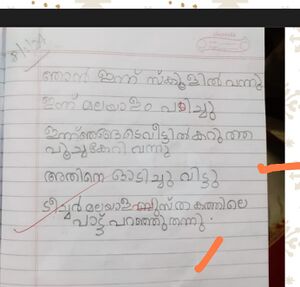 ഞാൻ ഇന്ന് സ്കൂളിൽ വന്നു
ഇന്ന് മലയാളം പഠിച്ചു
ഇന്ന് ഞങ്ങടെ വീട്ടിൽ കറുത്ത
പൂച്ച കേറി വന്നു
അതിനെ ഓടിച്ചു വിട്ടു
ടീച്ചർ മലയാള പുസ്തകത്തിലെ
പാട്ട് പറഞ്ഞു തന്നു .